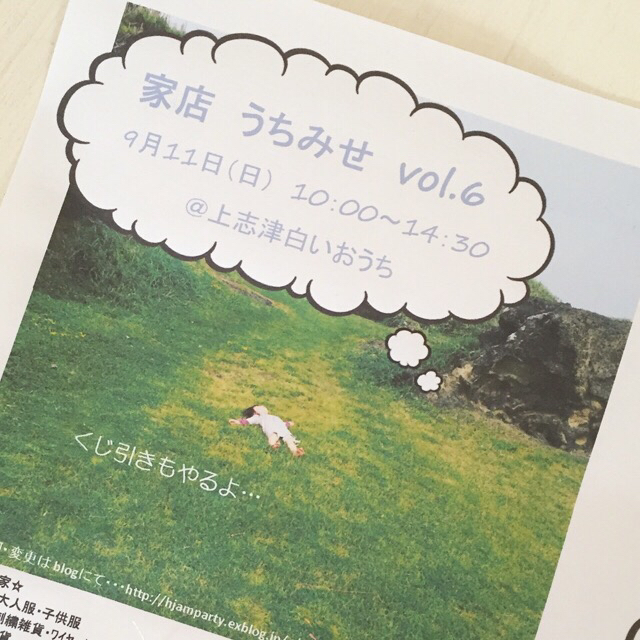 家店 うちみせ vol.6
9月11日(日) 10:00~14:30
@上志津白いおうち
くじ引きもやるよ…
・変更は blogにて・・・http://hjamparty.exblog.jp/
家☆
大人服・子供服
刺繍雑貨・ワイヤ
貨